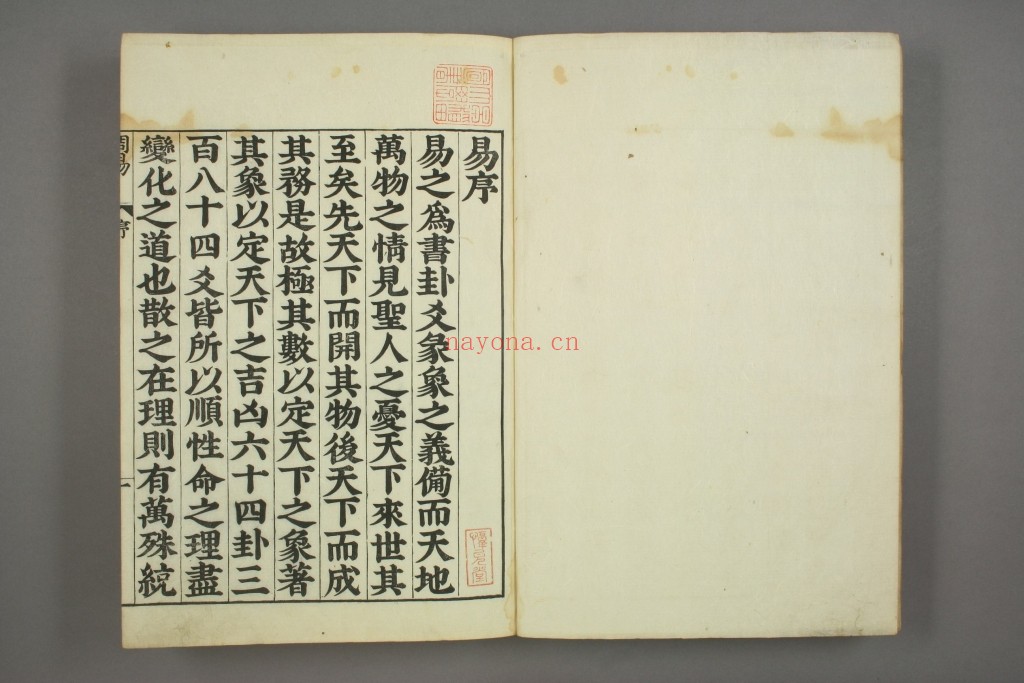 易序
易之爲書卦爻彖象之義備而天地
萬物之情見聖人之憂天下來世其
至矣先天下而開其物後天下而成
其務是故極其數以定天下之象著
其象以定天下之吉凶六十四卦三
百八十四爻皆所以順性命之理盡
變化之道也散之在理則有萬殊統
周易 序 一
nayona.cn